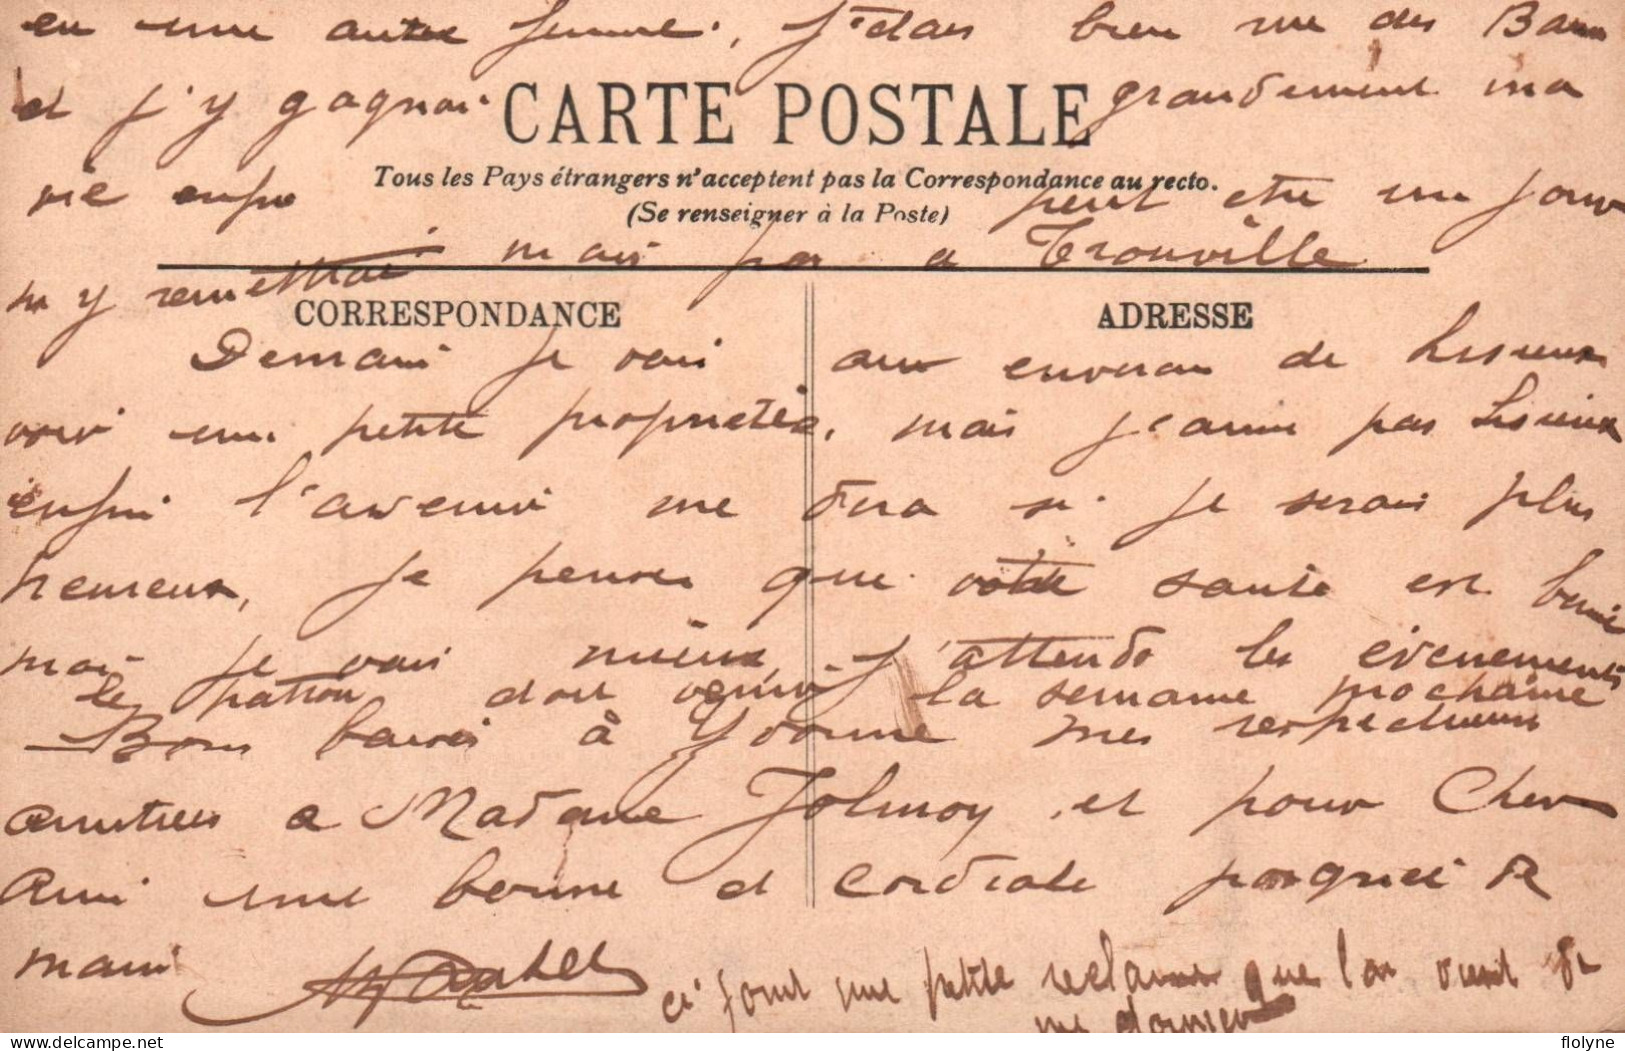 en une autre femme, J'etais bien rue des Bains
et j'y gagnai grandement ma
CARTE POSTALE
Tous les Pays étrangers n'acceptent pas la Correspondance au recto.
(Se renseigner à la Poste)
vie enfin peut etre un jour
m'y remettrai mais pas a Trouville
CORRESPONDANCE
ADRESSE
Demain je vais aux environ de Lisieux
voir une petite propriétée, mais j'aime pas Lisieux
enfin l'avenir me dira si je serais plus
heureux, je pense que votre santé est bonne
moi je vais mieux, J'attends les évènements
le patron doit venir la semaine prochaine
Bons baisés à Yvonne mes respectueuses
amitiees a Madame Jolmoy et pour Cher
Ami une bonne et cordiale poignée de
main
ci joint une petite reclame que l'on vient de
me donner
flolyne